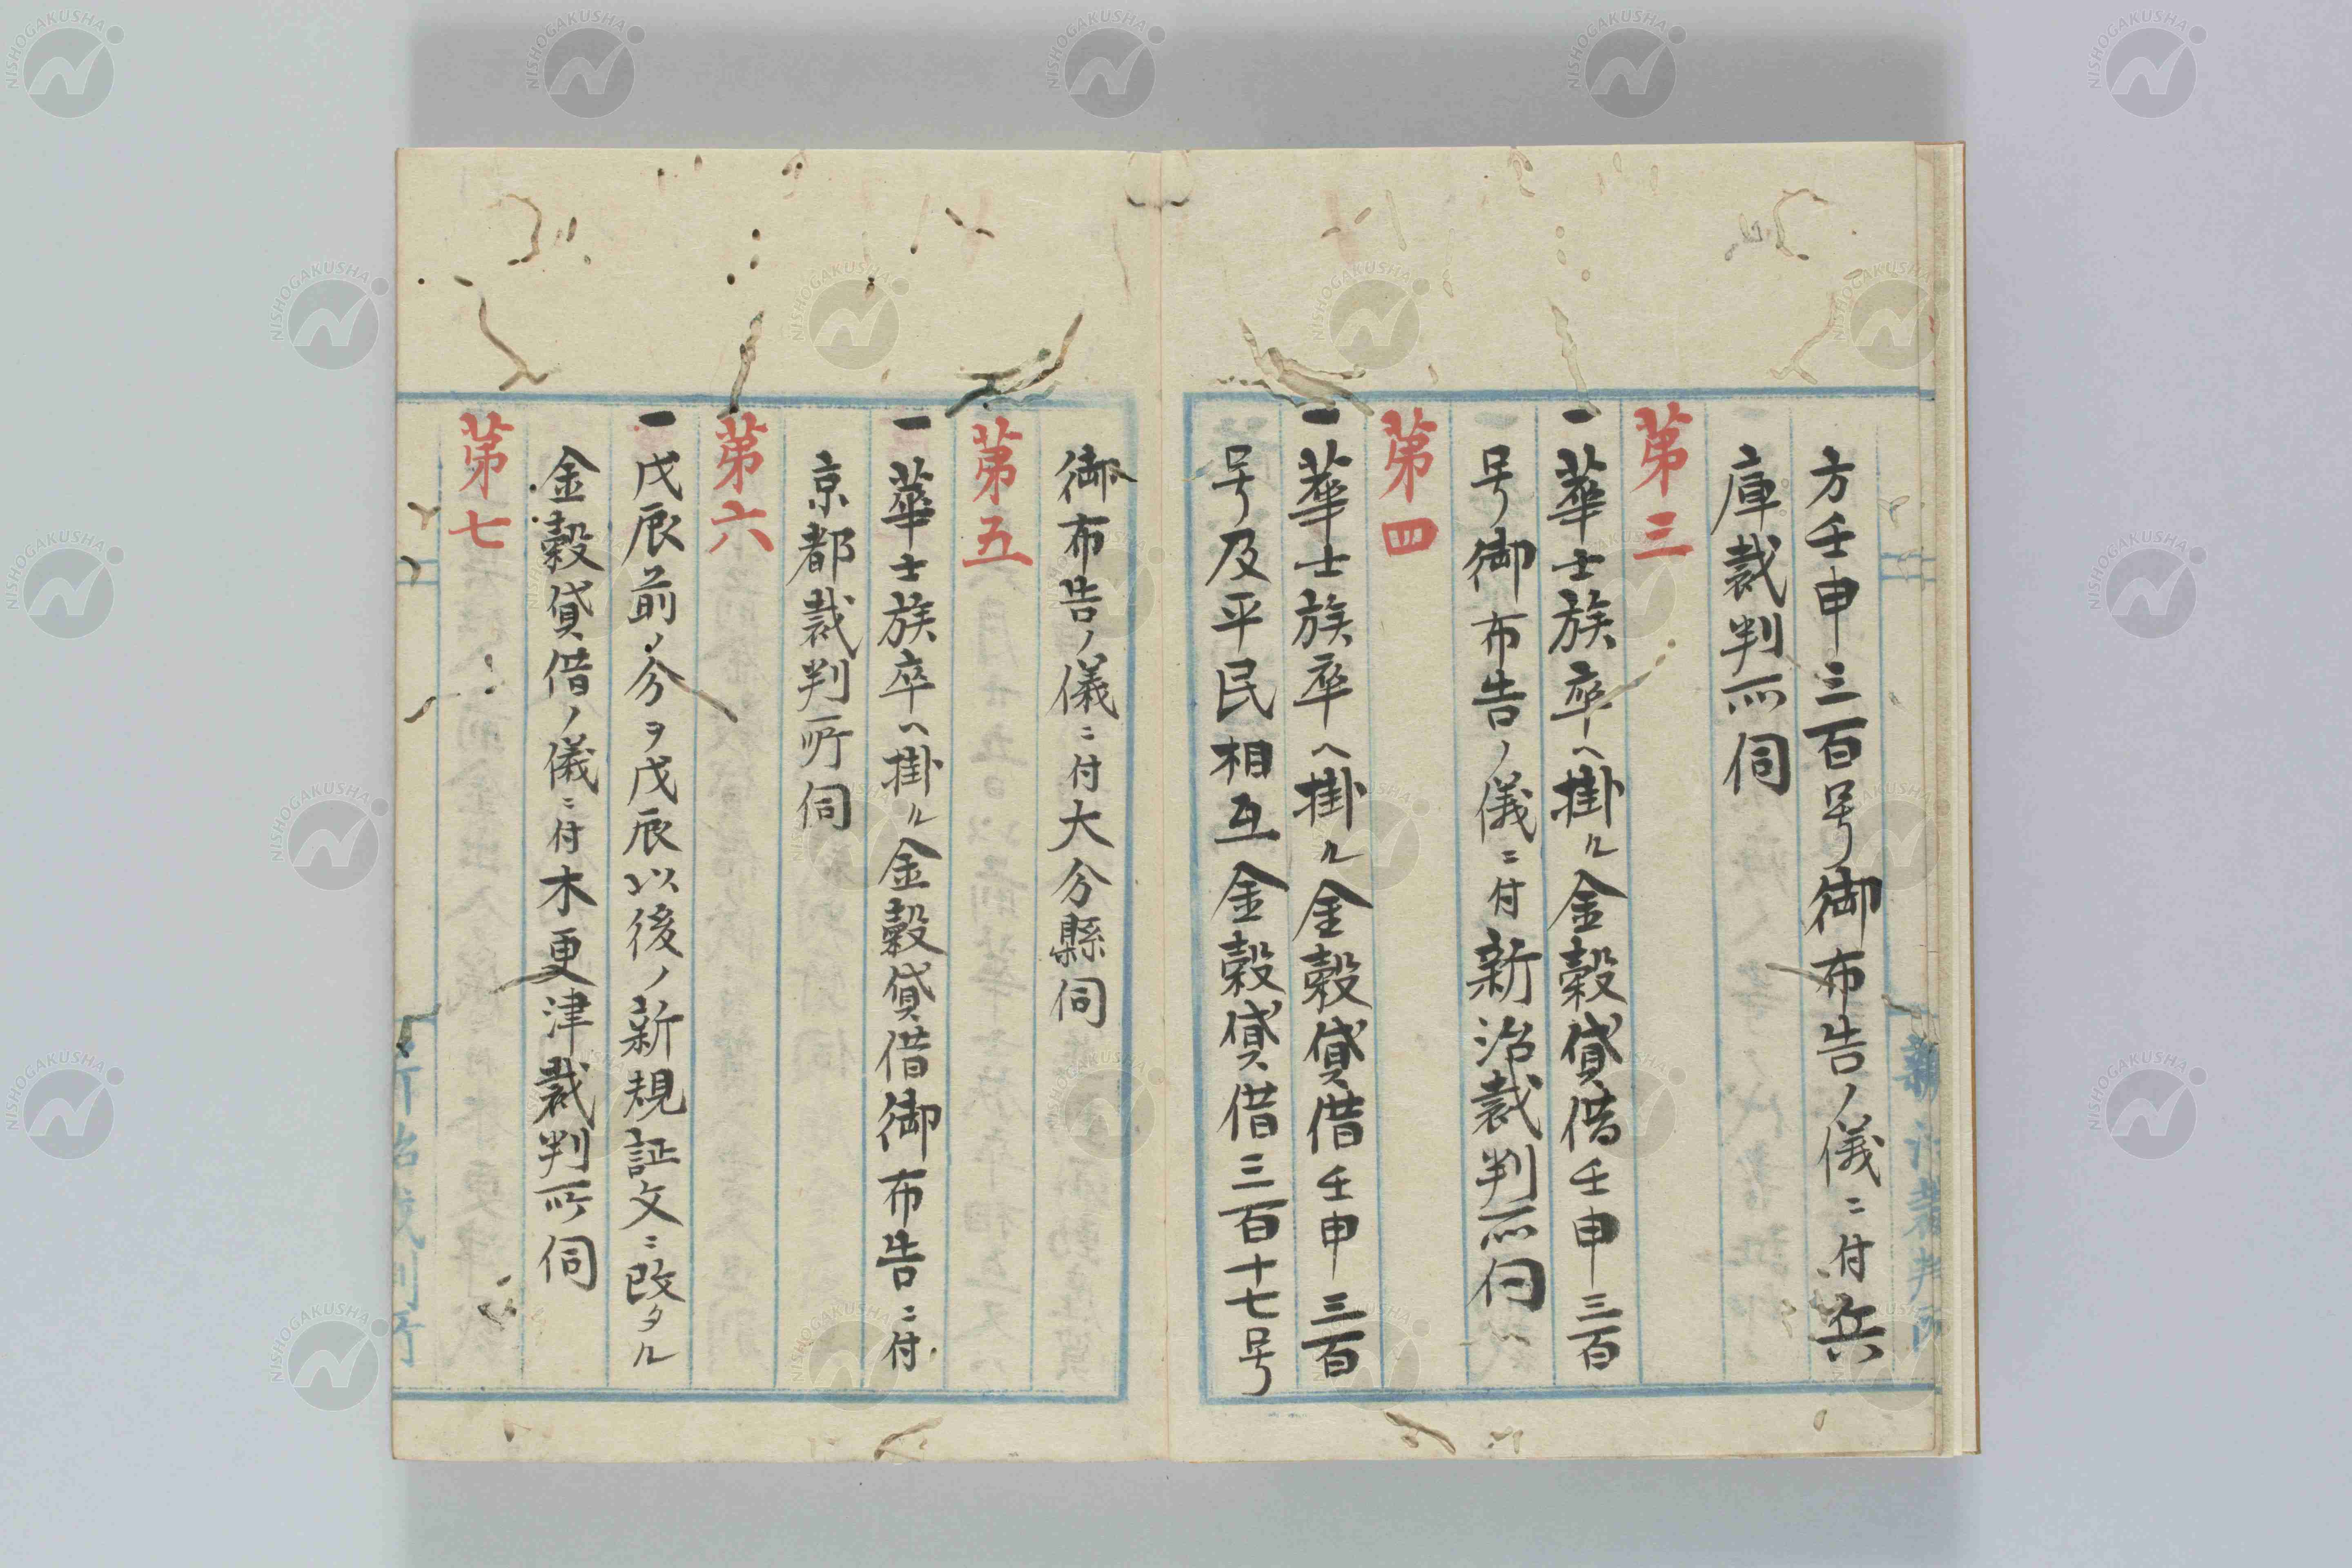 方壬申三百号御布告ノ儀ニ付兵
庫裁判所伺
第三
一華士族卒ヘ掛ル金穀貸借壬申三百
号御布告ノ儀ニ付新治裁判所伺
第四
一華士族卒ヘ掛ル金穀貸借壬申三百
号及平民相互金穀貸借三百十七号
御布告ノ儀ニ付大分縣伺
第五
一華士族卒ヘ掛ル金穀貸借御布告ニ付
京都裁判所伺
第六
一戊辰前ノ分ヲ戊辰以後ノ新規証文ニ改タル
金穀貸借ノ儀ニ付木更津裁判所伺
第七
新治裁判所
NISHOGAKUSHA